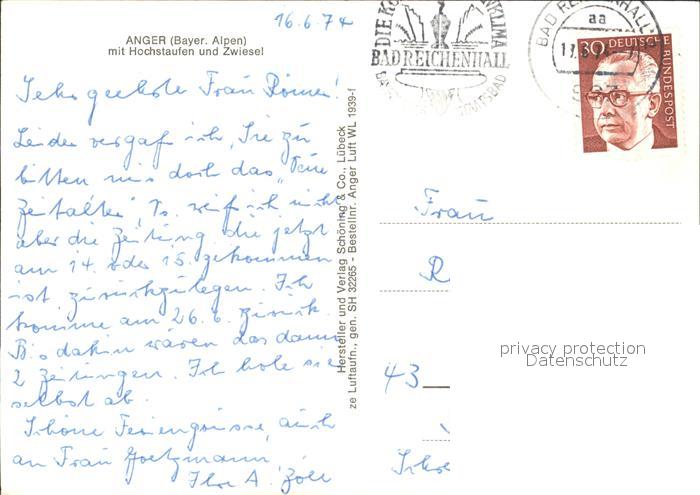 16.6.74
ANGER (Bayer. Alpen)
mit Hochstaufen und Zwiesel
Sehr geehrte Frau Römer!
Leider vergaß ich, Sie zu
bitten mir doch das „Neue
Zeitalter",
aber die Zeitung die jetzt
am 14. oder 15. gekommen
ist zurückzulegen. Ich
komme am 26.6. zurück.
Bis dahin wären das dann
2 Zeitungen. Ich hole sie
selbst ab.
Schöne Feriengrüsse, auch
an Frau Goetzmann
Ihre A.
Hersteller und Verlag Schöning & Co., Lübeck
ze Luftaufn., gen. SH 32265 - Bestellnr. Anger Luft WL 1939-f
BAD REICHENHALL
BAD REICHENHALL
aa
30 DEUTSCHE
BUNDESPOST
Frau
R
43
privacy protection
Datenschutz